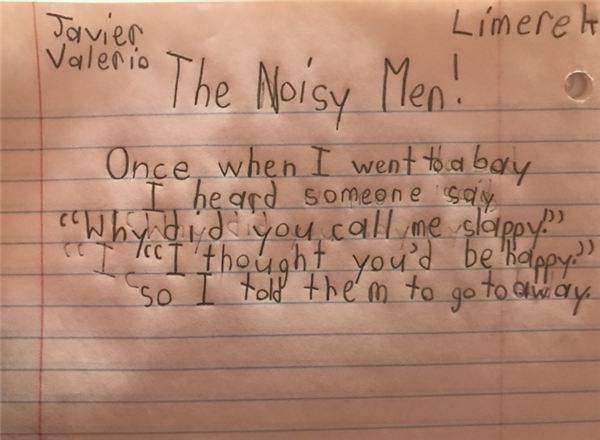 Javier
Valerio
Limerek
The Noisy Men!
Once when I went to a bay
I heard someone say
“Why did you call me slappy?”
“I thought you'd be happy.”
so I told them to go to away.